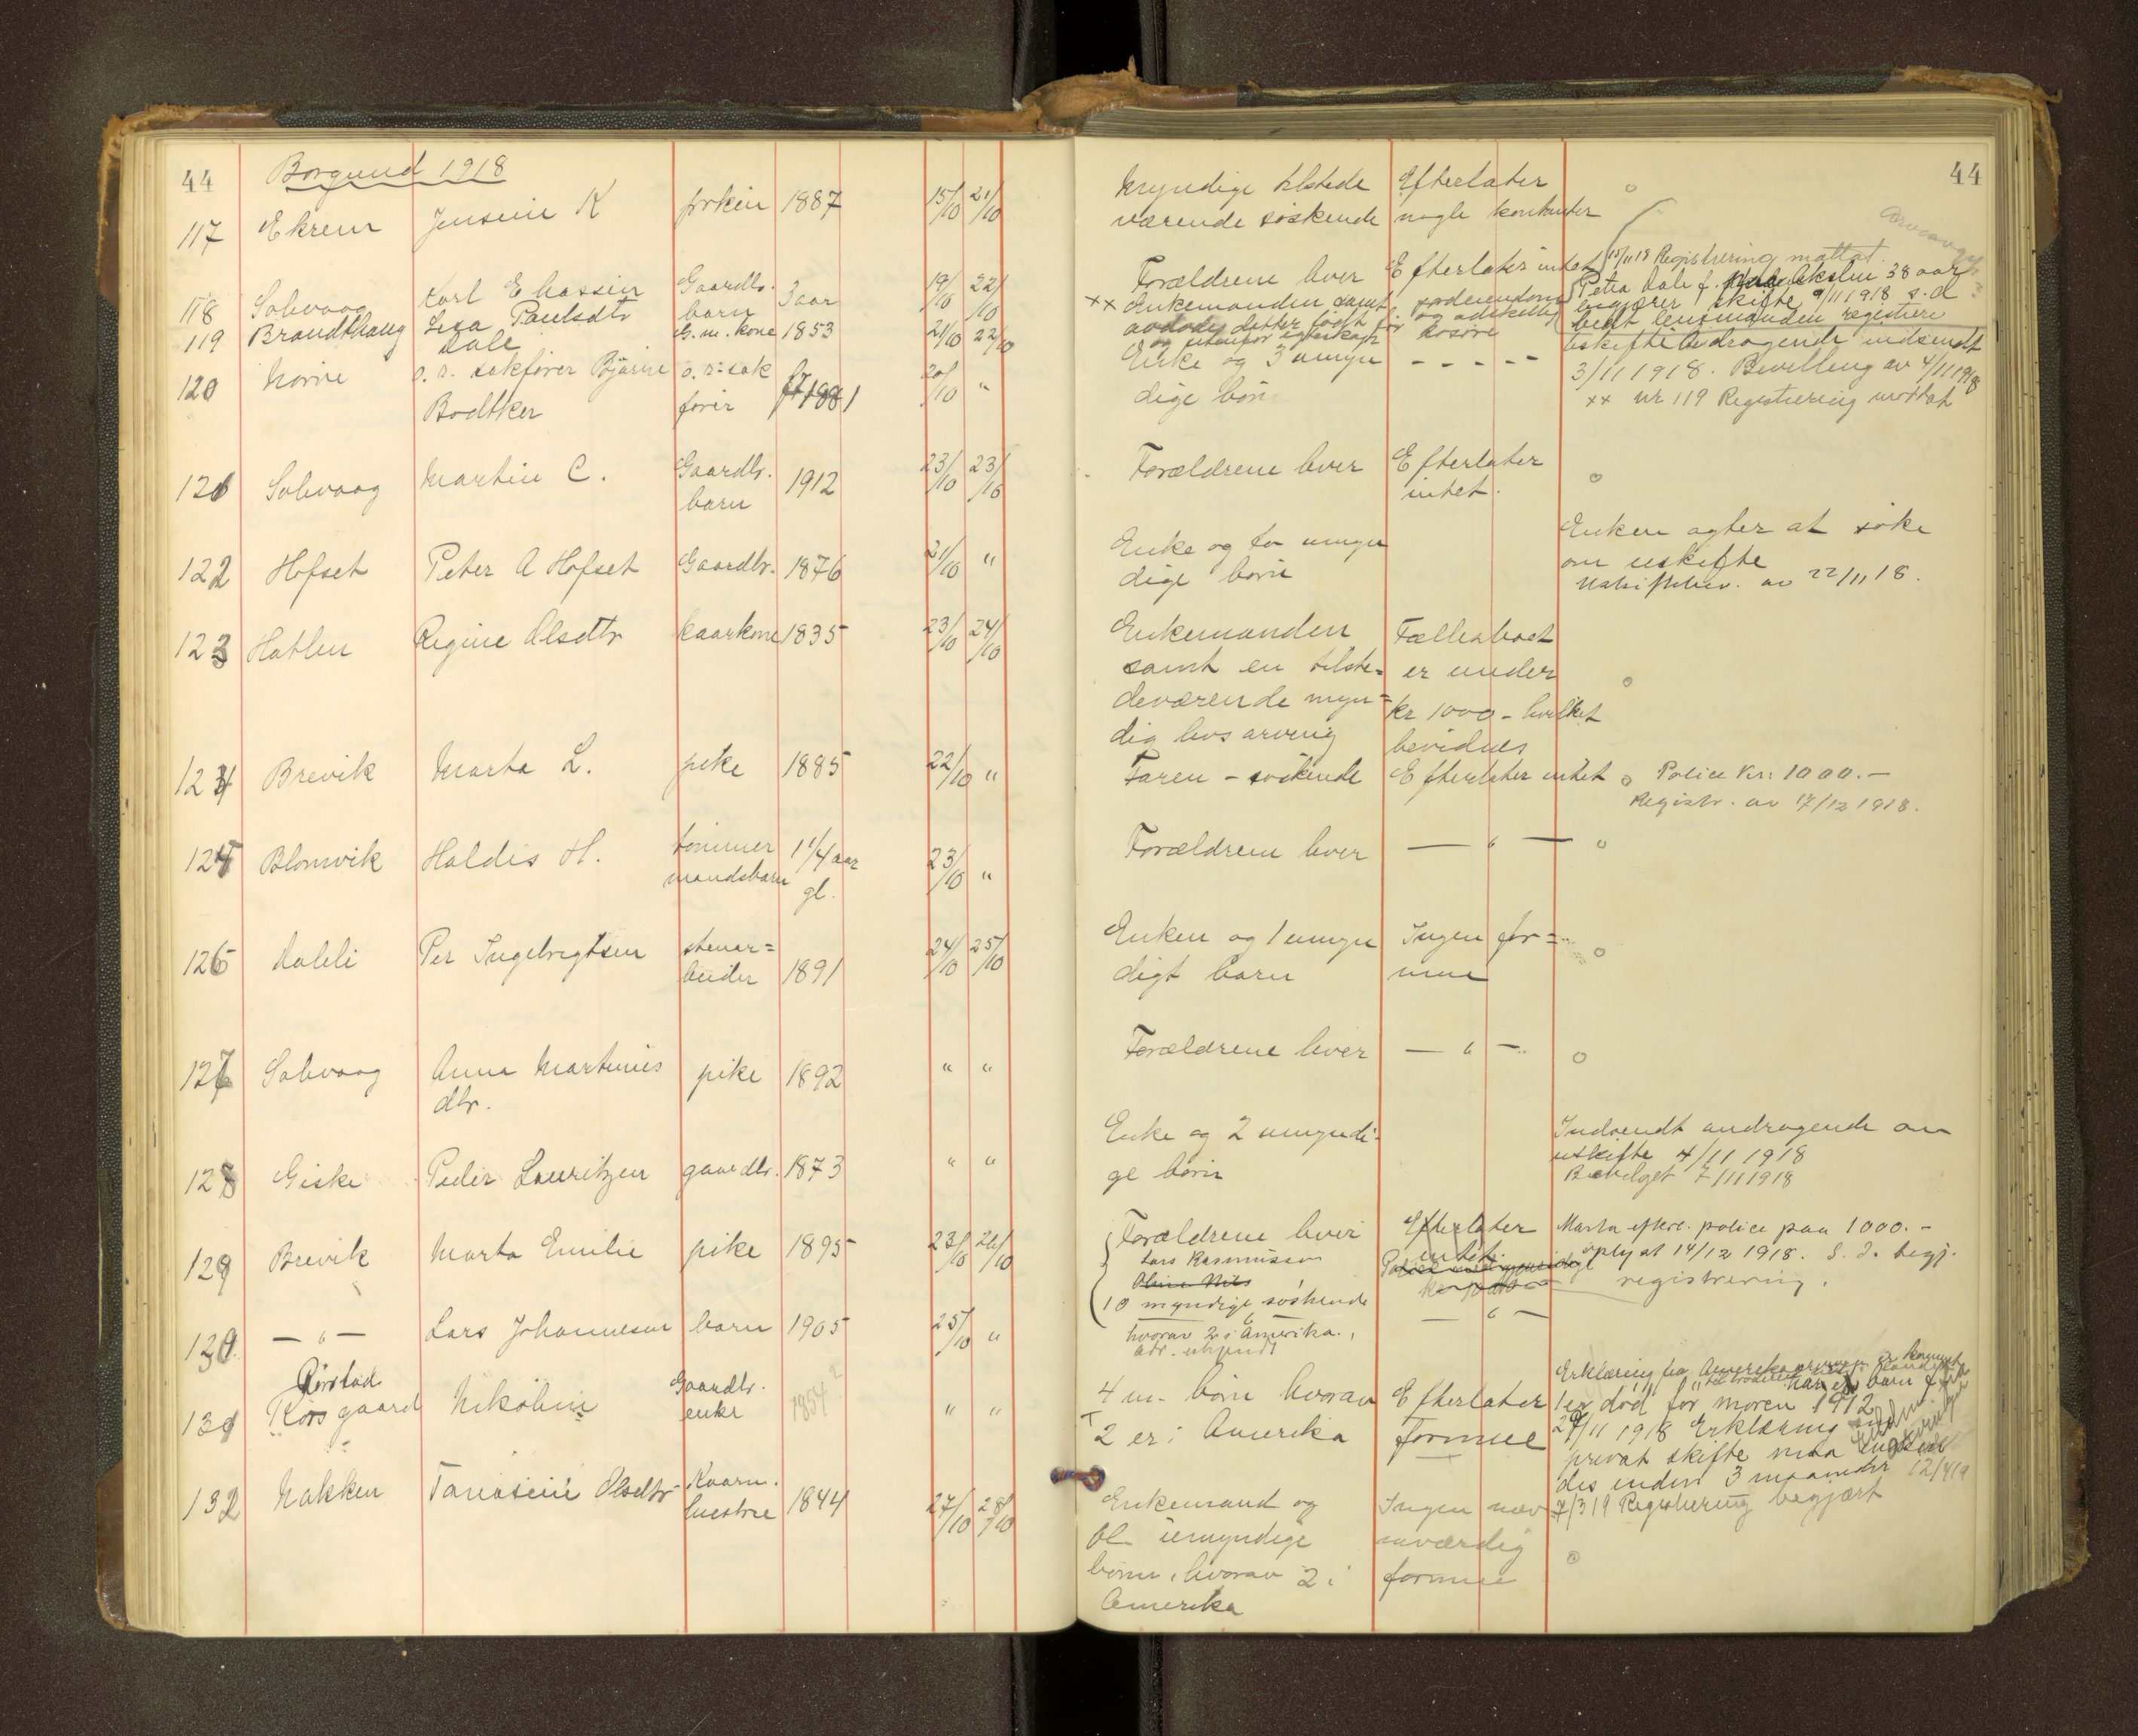 44
Borgund 1918
117 Ekrem Jensine K frøken 1887 15/10 21/10
118 Solvaag Karl Eliassen Gaardbr. barn 3 aar 19/10 22/10
119 Brandthaug Lesa Paulsdtr Dale G.m. kone 1853 21/10 22/10
120 Nørve o.r. sakfører Bjarne
Bødtker o.r. sak
fører 1881 20/10 "
121 Solvaag Martin C. Gaardbr.
barn 1912 23/10 23/10
122 Hofset Peter A Hofset Gaardbr. 1876 21/10 "
123 Hatlen Regine Olsdtr kaarkone 1835 23/10 24/10
124 Brevik Marta L. pike 1885 22/10 "
125 Blomvik Haldis H. tømmer
mandsbarn 1 1/4 aar
gl. 23/10 "
126 Dalli Per Ingebrigtsen stenar=
beider 1891 24/10 25/10
127 Solvaag Anna Martinus
dtr. pike 1892 " "
128 Giske Peder Lauritzen gaardbr. 1873 " "
129 Brevik Marta Emilie pike 1895 23/10 26/10
130 — " — Lars Johannesen barn 1905 25/10 "
131 Rørstad
Korsgaard Nikoline Gaardbr.
enke 1854? " "
132 Nakken Tanasine Olsdtr Kaarm.
hustru 1844 27/10 28/10
44
Myndige tilstede
værende søskende Efterlater
nogle kontanter
Forældrene lever Efterlater intet 15/11 18 Registrering mottat.
xx Enkemanden samt
avdødes datter født før
og utenfor egteskap
og adskillig
løsøre
Petra Dale f. 38 aar
begjærer skifte 9/11 1918 s.d
bedt lensmanden registrere
Enke og 3 umyn
dige børn - - - - -
uskifteandragende indsendt
3/11 1918. Bevilling av 4/11 1918
xx nr 119 Registrering mottat
Forældrene lever Efterlater
intet.
Enke og to umyn
dige børn
Enken agter at søke
om uskifte
Uskiftebev. av 22/11 18.
Enkemanden
samt en tilste=
deværende myn=
dig livsarving
Fællesboet
er under
kr 1000 - hvilket
bevidnes
Faren - søskende Efterlater intet Police Kr: 1000.-
Registr. av 17/12 1918.
Forældrene lever — " —
Enken og 1 umyn
digt barn Ingen for=
mue
Forældrene lever — " —
Enke og 2 umyndi-
ge børn
Indsendt andragende om
uskifte 4/11 1918
Bevilget 7/11 1918
Forældrene lever
Lars Rasmussen
Olina Nils
10 myndige søskende
hvorav 2 i Amerika.
adr. ukjendt
Efterlater
intet.
Marta efterl. police paa 1000.-
oplyst 14/12 1918. S. d. begj.
registrering.
— " —
4 m. børn hvorav
2 er i Amerika
Efterlater
formue
1 er død før moren 1912
27/11 1918 Erklæring om
privat skifte maa indsen
des inden 3 maaneder 12/4 19
7/3 19 Registrering begjært
Enkemand og
umyndige
børn, hvorav 2 i
Amerika
Ingen nev
neværdig
formue